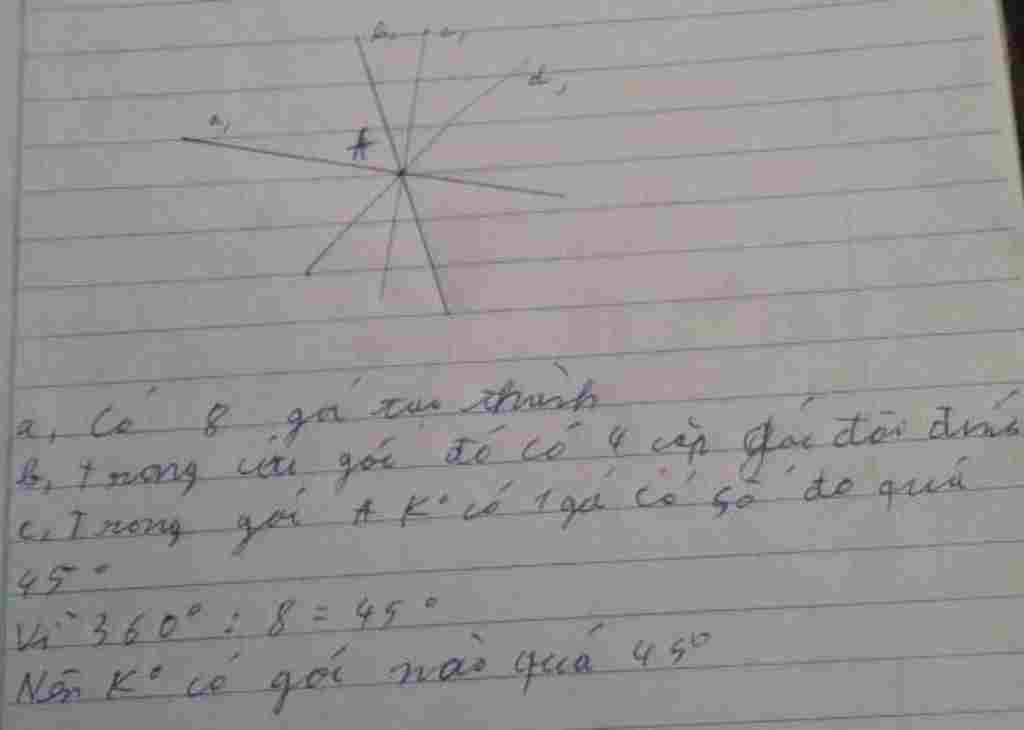 b, c,
d,
a,
A
a, Có 8 gó tạo thành
b, Trong các góc đó có 4 cặp góc đối đỉnh
c, Trong gói A K° có 1 gó có số đo quá
45°
Vì 360° : 8 = 45°
Nên K° có gói nào quá 45°